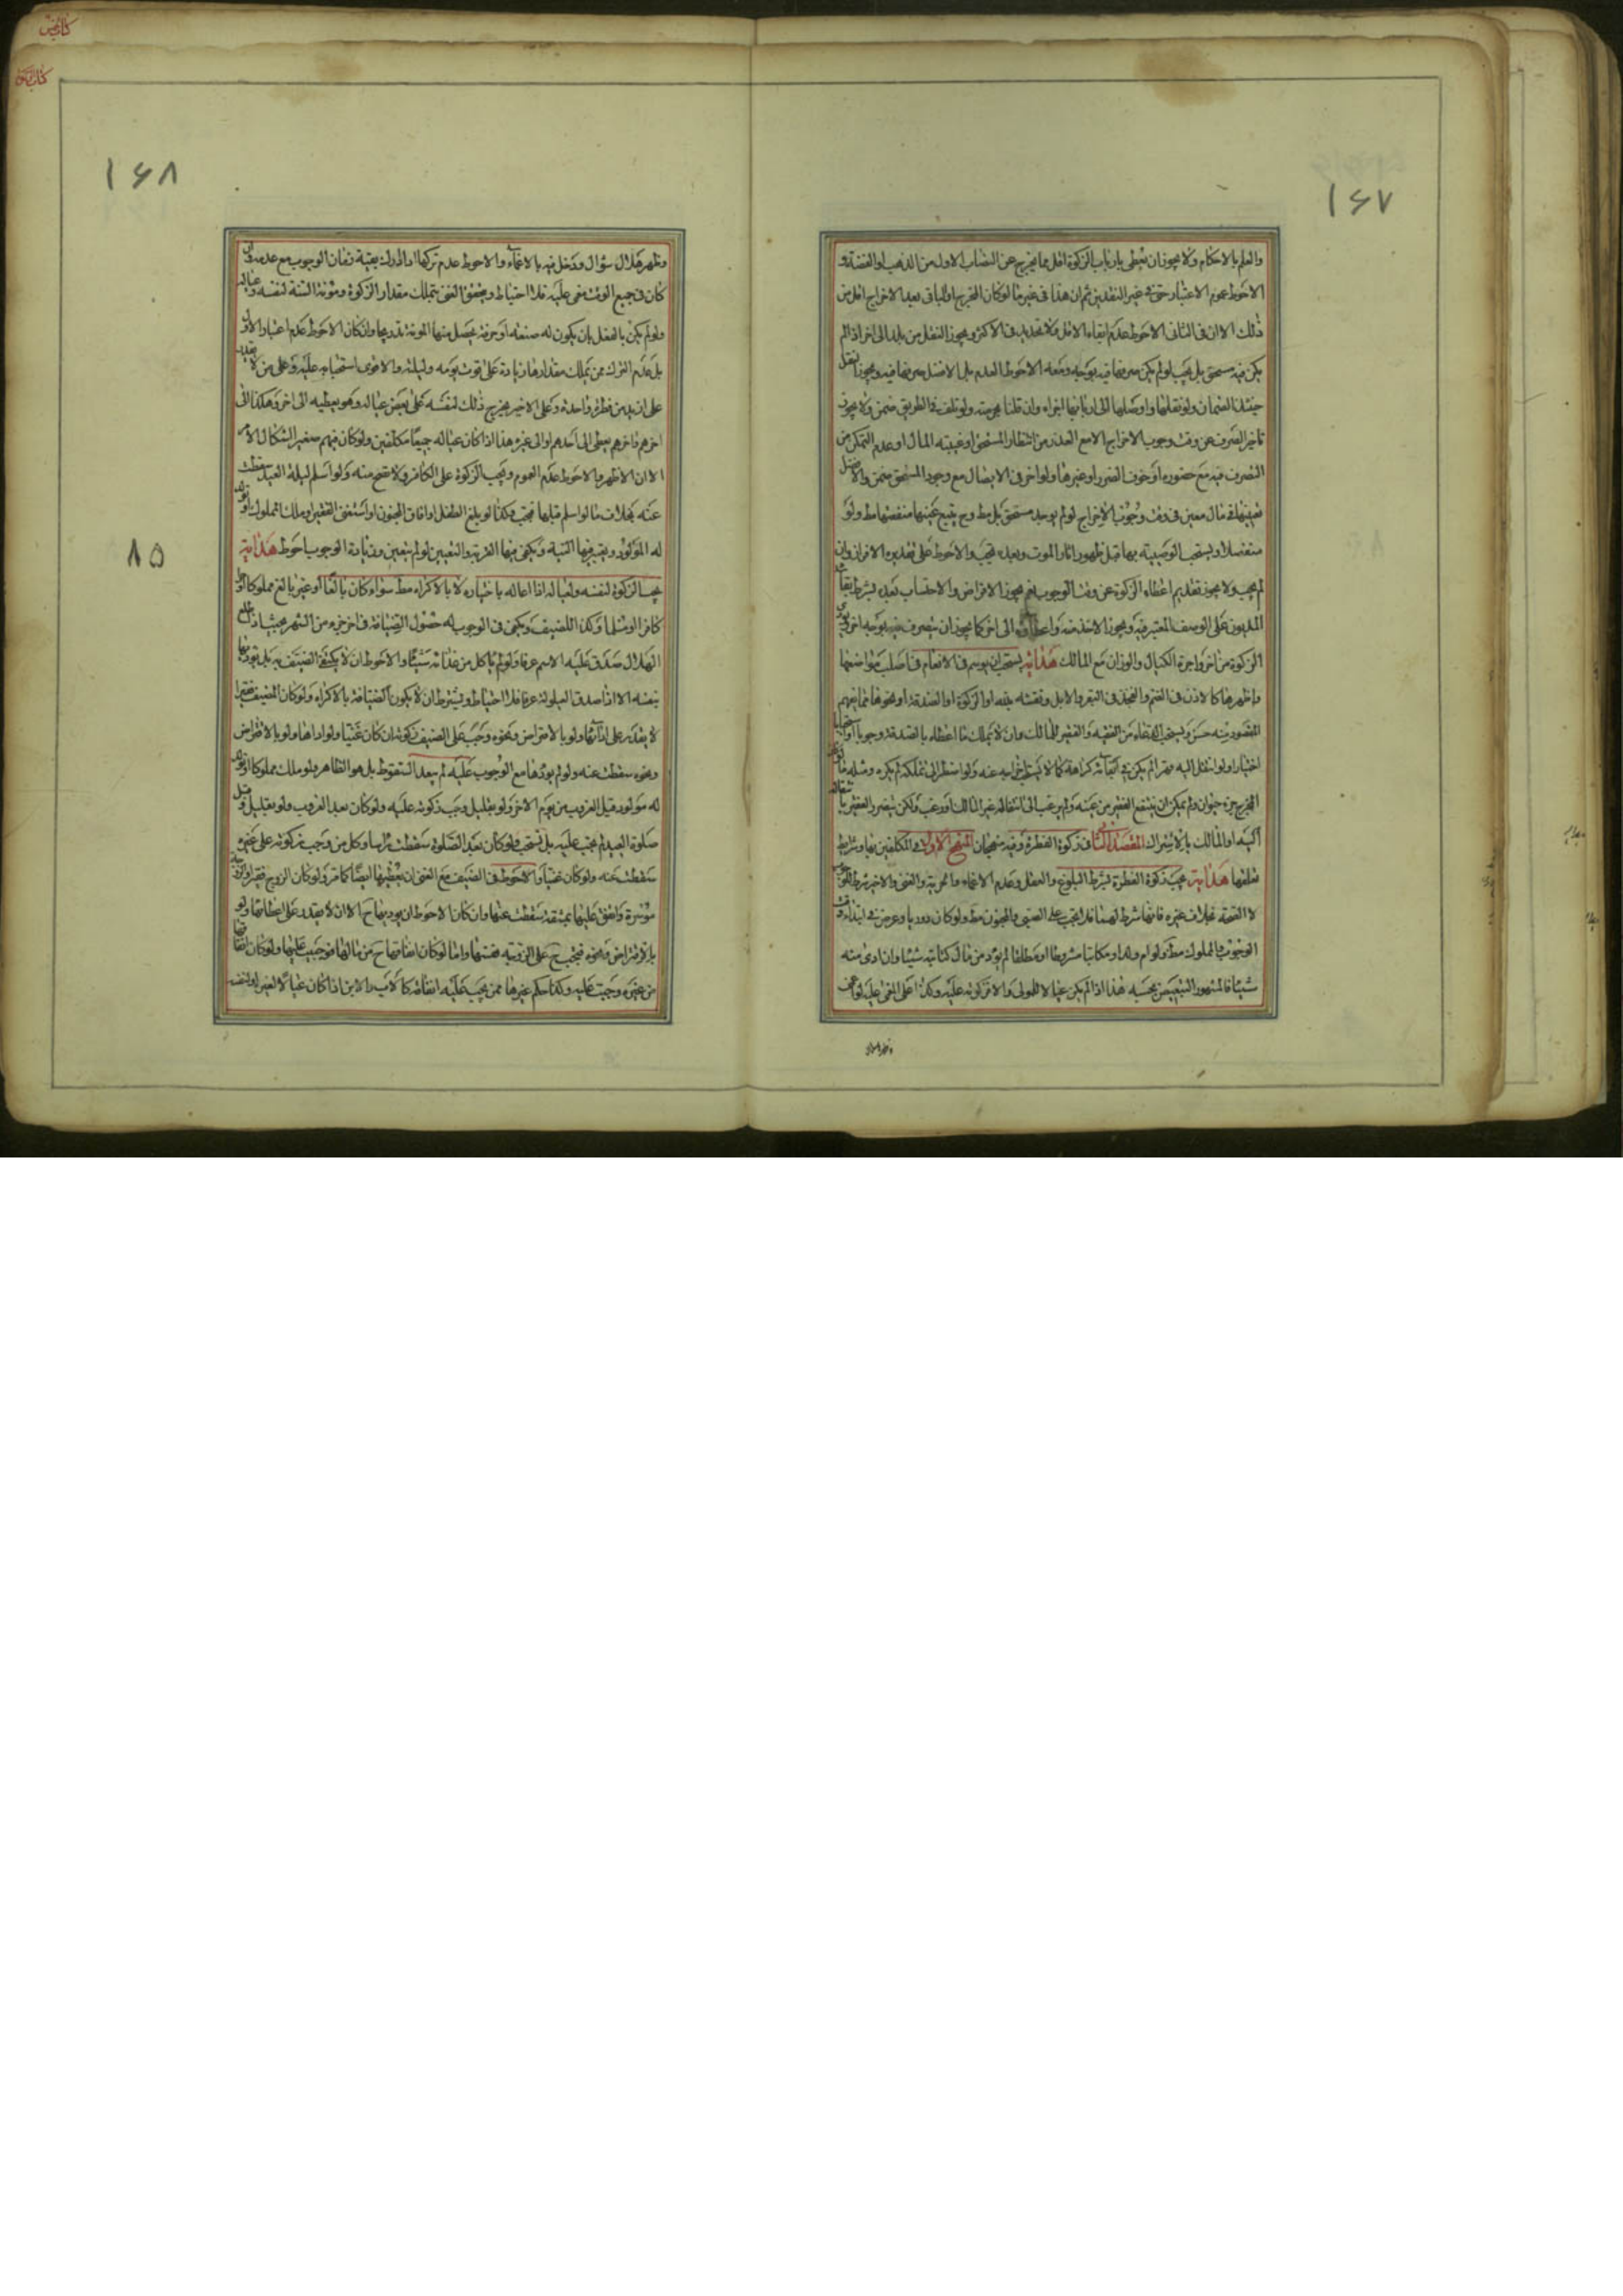 ١٦٧
والعلم بالاحكام ولا يجوز ان يعطى بارباب الزكوة اقل مما يخرج عن النصاب الاول من الذهب او الفضة و
الاحوط عموم الاعتبار حتى فى غير النقدين ثم ان هذا فى غير ما لو كان المخرج او الباقى بعد الاخراج اقل من
ذلك الا ان فى الثانى الاحوط عدم ابقاء الاقل ولا تحديد فى الاكثر ويجوز النقل من بلد الى اخر اذا لم
يكن فيه مستحق بل يجب لو لم يكن صرفها فيه بوجه ومعه الاحوط العدم بل الافضل صرفها فيه ويجوز النقل
الضمان ولو نقلها واوصلها الى اربابها اجزاه وان قلنا بحرمته ولو تلف فى الطريق ضمن ولا يجوز
تاخير الصرف عن وقت وجوب الاخراج الا مع العذر من انتظار المستحق او غيبة المال او عدم التمكن من
التصرف فيه مع حضوره او خوف الضرر او غيرها ولو اخر فى الايصال مع وجود المستحق ضمن والافضل
تعيينها فى مال معين فى وقت وجوب الاخراج لو لم يوجد مستحق بل مط وح يتبع عينها منفعتها مط ولو
منفصلا ويستحب الوصية بها قبل ظهور اثار الموت وبعده يجب والاحوط على تقديره الافراز وان
لم يجب ولا يجوز تقديم اعطاء الزكوة عن وقت الوجوب نعم يجوز الاقراض والاحتساب بعد بشرط بقاء
المديون على الوصف المعتبر فيه ويجوز الاخذ منه الى اخر كما يجوز ان يصرف فيه بوجه اخر
الزكوة من اخر واجرة الكيال والوزان مع المالك هداية يستحب ان يوسم فى الانعام فى اصلب مواضعها
واظهرها كالاذن فى الغنم والفخذ فى البقر والابل ونقشه بنحو او الزكوة او الصدقة او نحوها مما يفهم
المقصود منه حسن
اختيارا ولو انتقل اليه قهرا لم يكن فى ابقائه كراهة كما لا ولو اضطر الى تملكه لم يكره ومثله ما
المخرج جزء حيوان ولم يمكن ان ينتفع الفقير من عينه ولم يرغب الى انتقاله غير المالك او رغب ولكن يتضرر الفقير
المالك بالاشتراك المقصد الثانى فى زكوة الفطرة وفيه منهجان المنهج الاول فى المكلفين بها وشرايط
تعلقها هداية يجب زكوة الفطرة بشرط البلوغ والعقل وعدم الاغماء والحرية والغنى والاخير شرط للوجوب
لا الصحة بخلاف غيره فانها شرط لهما فلا تجب على الصبى والمجنون مط ولو كان دوريا وعرض فى ابتداء وقت
الوجوب والمملوك مط ولو ام ولد او مكاتبا مشروطا او مطلقا لم يؤد من مال كتابته شيئا وان ادى منه
شيئا فالمشهور التبعيض بحسبه هذا اذا لم يكن عيالا للمولى والا فزكوته عليه وكذا على المغمى عليه لو
وظهر هلال
١٦٨
وظهر هلال شوال ودخل فيه بالاغماء والاحوط عدم تركها اذا ادرك بقية زمان الوجوب مع عدمه وان
كان فى جميع الوقت مغمى عليه فلا احتياط ويتحقق الغنى بتملك مقدار الزكوة ومؤنة السنة لنفسه وعياله
ولو لم يكن بالفعل بان يكون له صنعة او حرفة يحصل منها المؤنة تدريجا وان كان الاحوط عدم اعتبار الاول
بل عدم الترك ممن يملك مقدارها زيادة على قوت يومه وليلته والاقوى استحبابه عليه وعلى من لا
على ازيد من فطرة واحدة وعلى الاخير يخرج ذلك لنفسه على بعض عياله وهو يعطيه الى اخر وهكذا الى
اخرهم واخرهم يعطى الى احدهم او الى غيره هذا اذا كان عياله جميعا مكلفين ولو كان فيهم صغير اشكال الامر
الا ان الاظهر والاحوط عدم العموم ويجب الزكوة على الكافر ولا تصح منه ولو اسلم ليلة العيد سقطت
عنه بخلاف ما لو اسلم قبلها فتجب وكذا لو بلغ الطفل او افاق المجنون او استغنى الفقير او ملك المملوك او تولد
له المولود ويعتبر فيها النية ويكفى فيها القربة والتعيين لو لم يتعين وزيادة الوجوب احوط هداية
يجب الزكوة لنفسه ولعياله اذا عاله باختياره لا بالاكراه مط سواء كان بالغا او غير بالغ مملوكا او
كافرا او مسلما وكذا للضيف ويكفى فى الوجوب له حصول الضيافة فى اخر جزء من الشهر بحيث اذا طلع
الهلال صدق عليه الاسم عرفا ولو لم ياكل من غذائه شيئا والاحوط ان لا يكتفى الضيف به بل يؤديها
بنفسه الا اذا صدق العيلولة عرفا فلا احتياط ويشترط ان لا يكون الضيافة بالاكراه ولو كان المضيف فقيرا
لا يقدر على ادائها ولو بالاقتراض ونحوه وجب على الضيف زكوته ان كان غنيا ولو اداها ولو بالاقتراض
ونحوه سقطت عنه ولو لم يؤدها مع الوجوب عليه لم يبعد السقوط بل هو الظاهر ولو ملك مملوكا او تولد
له مولود قبل الغروب من يوم الاخر ولو بقليل وجب زكوته عليه ولو كان بعد الغروب ولو بقليل وقبل
صلوة العيد لم يجب عليه بل تستحب ولو كان بعد الصلوة سقطت وكل من وجب زكوته على غيره
سقطت عنه ولو كان غنيا والاحوط فى الضيف مع الغنى ان يعطيها ايضا كما مر ولو كان الزوج فقيرا والزوجة
موسرة وانفق عليها بمشقة سقطت عنها وان كان الاحوط ان يؤديها ح الا ان لا يقدر على اعطائها ولو
بالاقتراض ونحوه فيجب ح على الزوجة بنفسها واما لو كان انفاقها ح من مالها فوجبت عليها ولو كان انفاقها
من غيره وجبت عليه وكذا حكم غيرها ممن يجب عليه انفاقه كالاب والابن اذا كان عيالا لغير او لنفسه
٨٥